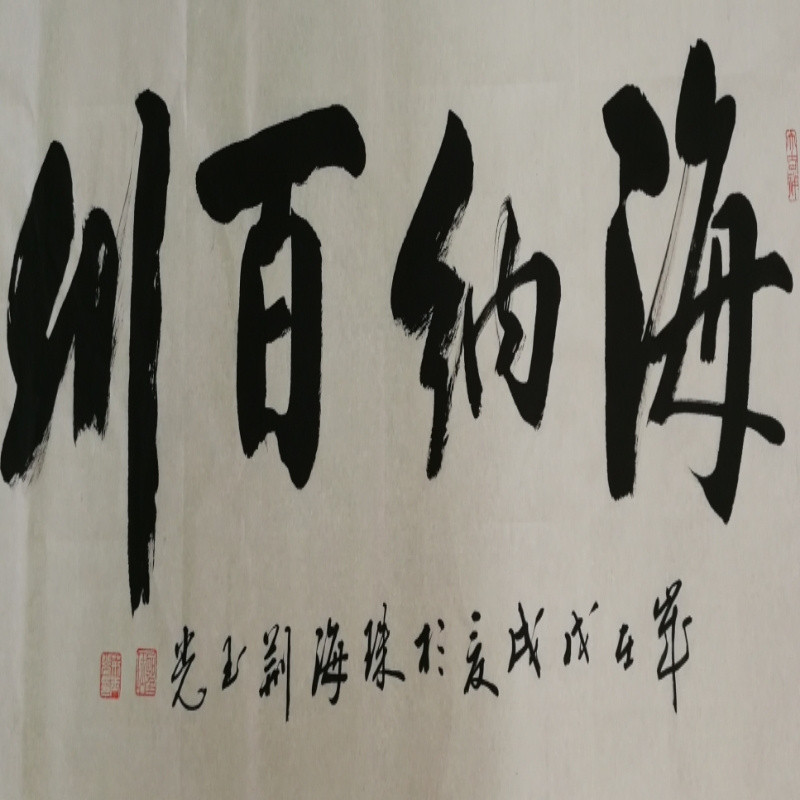 海纳百川
岁在戊戌夏於珠海荆玉光